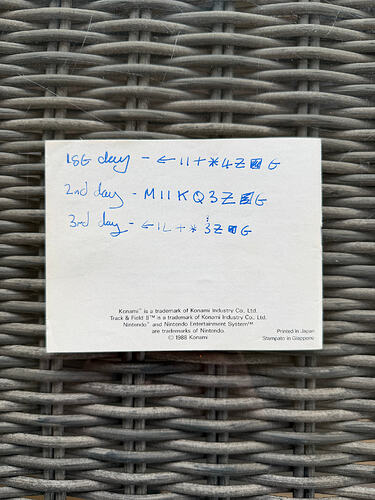 1st day - ← 11 + * 4 Z ▨ G
2nd day - M11KQ3Z▨G
3rd day - ← 1L + * 3 Z ▨ G
Konami™ is a trademark of Konami Industry Co., Ltd.
Track & Field II™ is a trademark of Konami Industry Co., Ltd.
Nintendo® and Nintendo Entertainment System™
are trademarks of Nintendo.
© 1988 Konami
Printed in Japan
Stampato in Giappone